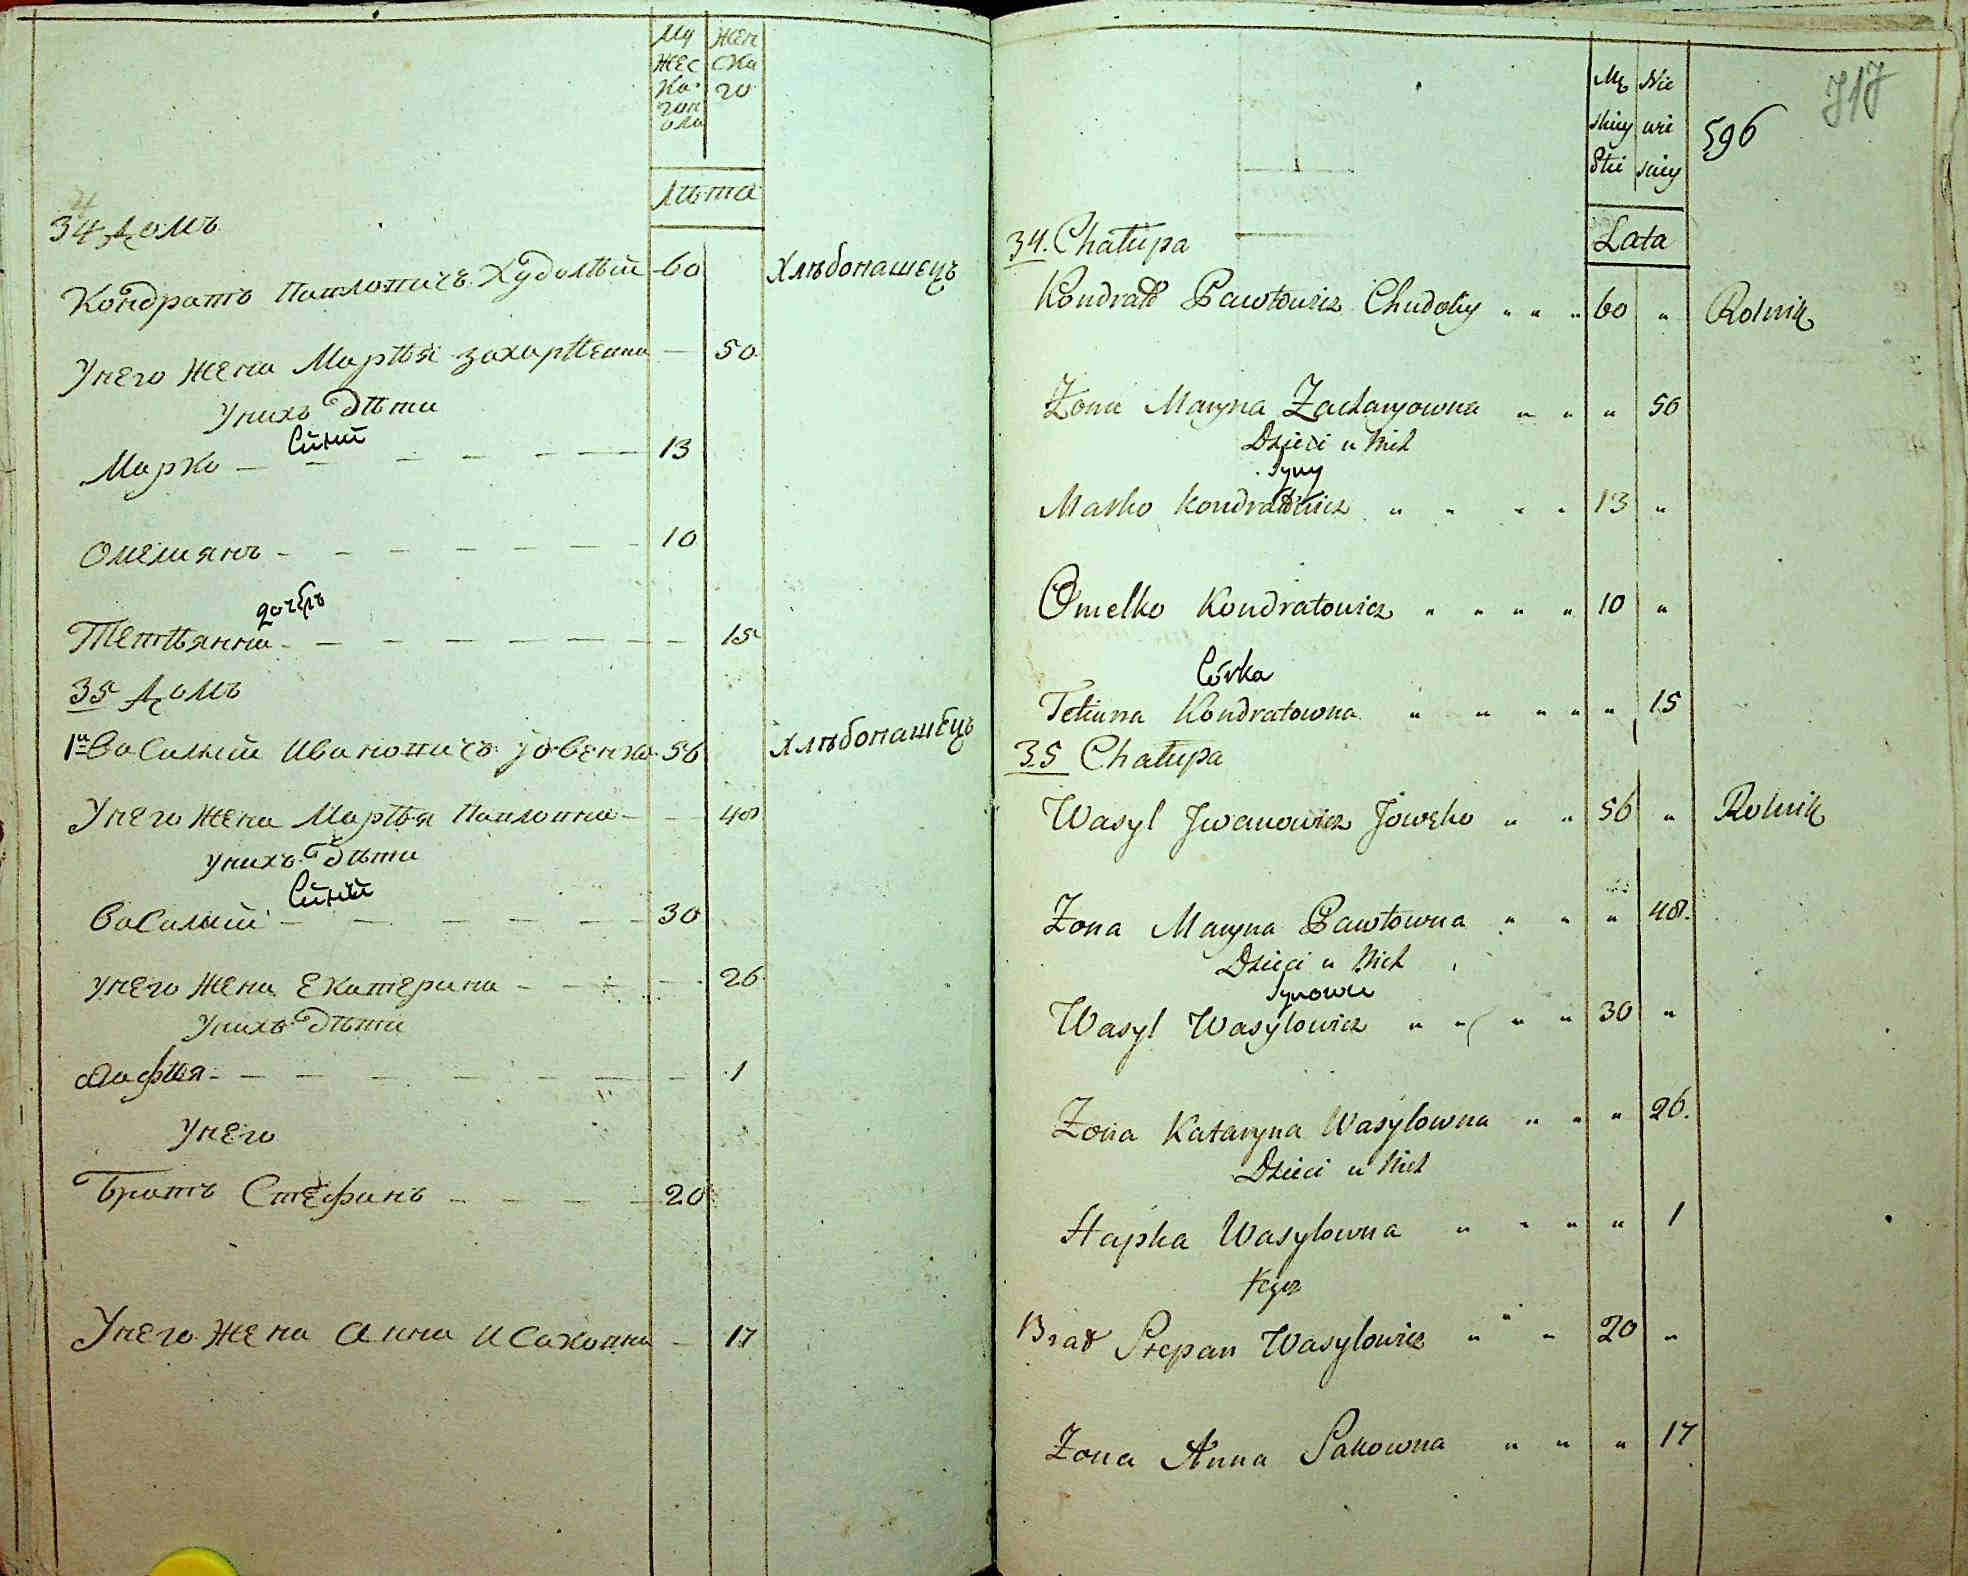 Му жен
жес ска
ка го
гоп
ола
лѣта
34 домъ
Кондратъ Павловичъ Худолѣй 60 хлѣбопашецъ
У него жена Марѣя Захарѣевна — 50
У нихъ дѣти
Сыны
Марко — — — — — — 13
Омелиянъ — — — — — — 10
дочерь
Тетѣянна — — — — — — — 15
35 домъ
Василий Ивановичъ 56 хлѣбопашецъ
У него жена Марѣя Павловна — — 48
У нихъ дѣти
Сыны
Василий — — — — — — 30
У него жена Екатерина — — — — 26
У нихъ дѣти
— — — — — — — 1
У него
Братъ Стефанъ — — — — 20
У него жена Анна Исаковна — 17
717
596
Mę Nie
skiey wie
Płci sciey
Lata
34. Chałupa
Kondrat Pawłowicz Chudoliy " " " 60 " Rolnik
Żona Maryna Zacharyowna " " " 50
Dzieci u Nich
Syny
Marko Kondratowicz " " " " 13 "
Omelko Kondratowicz " " " " 10 "
Córka
Tetiana Kondratowna " " " " " 15
35 Chałupa
Wasyl Jwanowicz " " 56 " Rolnik
Żona Maryna Pawłowna " " " 48.
Dzieci u Nich
Synowie
Wasyl Wasylowicz " " " " 30 "
Żona Kataryna Wasylowna " " " 26.
Dzieci u Nich
Hapka Wasylowna " " " " 1
Jego
Brat Stepan Wasylowicz " " " 20 "
Żona Anna Sakowna " " " 17